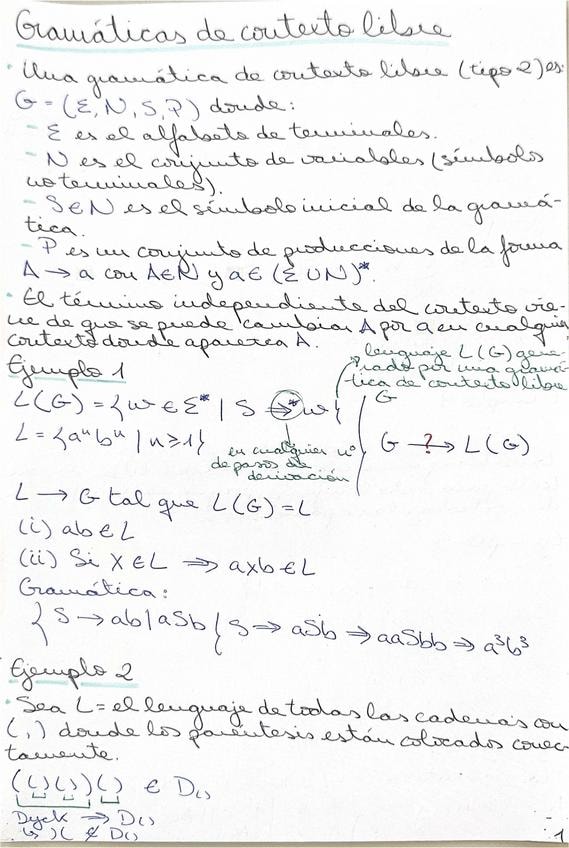 Gramáticas de contexto libre
· Una gramática de contexto libre (tipo 2) es:
G = (Σ, N, S, P) donde:
- Σ es el alfabeto de terminales.
- N es el conjunto de variables (símbolos
no terminales).
- S∈N es el símbolo inicial de la gramá-
tica.
- P es un conjunto de producciones de la forma
A → a con A∈N y a∈ (Σ ∪ N)*.
· El término independiente del contexto vie-
ne de que se puede cambiar A por a en cualquier
contexto donde aparezca A.
Ejemplo 1
lenguaje L(G) gene-
rado por una gramá-
tica de contexto libre
G
L(G) = {w ∈ Σ* | S ⇒* w}
L = {aⁿbⁿ | n≥1}
en cualquier nº
de pasos de
derivación
G -?→ L(G)
L → G tal que L(G) = L
(i) ab ∈ L
(ii) Si X ∈ L ⇒ axb ∈ L
Gramática:
{ S → ab | aSb { S ⇒ aSb ⇒ aaSbb ⇒ a³b³
Ejemplo 2
· Sea L = el lenguaje de todas las cadenas con
(,) donde los paréntesis están colocados correc-
tamente.
(()())() ∈ D()
Dyck ⇒ D()
↳ )( ∉ D()
1